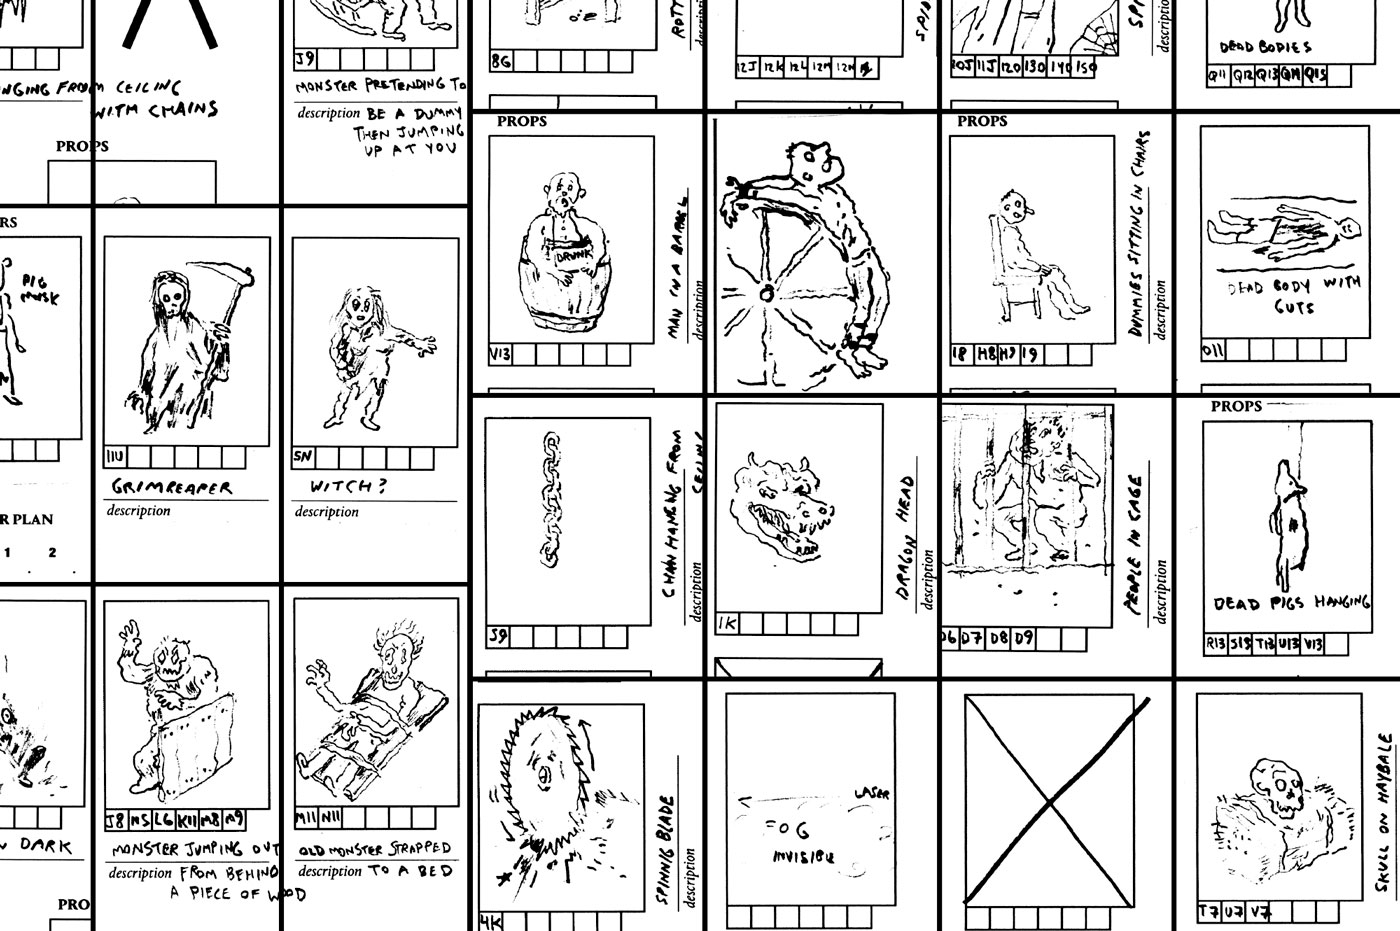 NGING FROM CEILING
WITH CHAINS
PROPS
J9
MONSTER PRETENDING TO
description BE A DUMMY
THEN JUMPING
UP AT YOU
8G
description
12J 12K 12L 12M 12N
description
10J 11J 12O 13O 14O 15O
description
DEAD BODIES
Q11 Q12 Q13 Q14 Q15
RS
PIG
MASK
11U
GRIMREAPER
description
5N
WITCH?
description
R PLAN
1 2
PROPS
DRUNK
V13
MAN IN A BARREL
description
PROPS
18 H8 H9 19
DUMMIES SITTING IN CHAIRS
description
DEAD BODY WITH
GUTS
O11
J9
CHAIN HANGING FROM
CEILIN
description
1K
DRAGON HEAD
description
D6 D7 D8 D9
PEOPLE IN CAGE
description
PROPS
DEAD PIGS HANGING
R13 S13 T13 U13 V13
N DARK
PRO
J8 M5 L6 K11 M8 M9
MONSTER JUMPING OUT
description FROM BEHIND
A PIECE OF WOOD
M11 N11
OLD MONSTER STRAPPED
description TO A BED
4K
SPINNIG BLADE
description
LASER
FOG
INVISIBLE
T7 U7 V7
SKULL ON HAYBALE